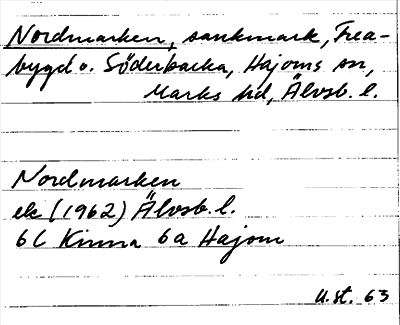 Nordmarken, sankmark, Frea-
bygd o. Söderbacka, Hajoms sn,
Marks hd, Älvsb. l.
Nordmarken
ek (1962) Älvsb. l.
6C Kinna 6a Hajom
U.st. 63